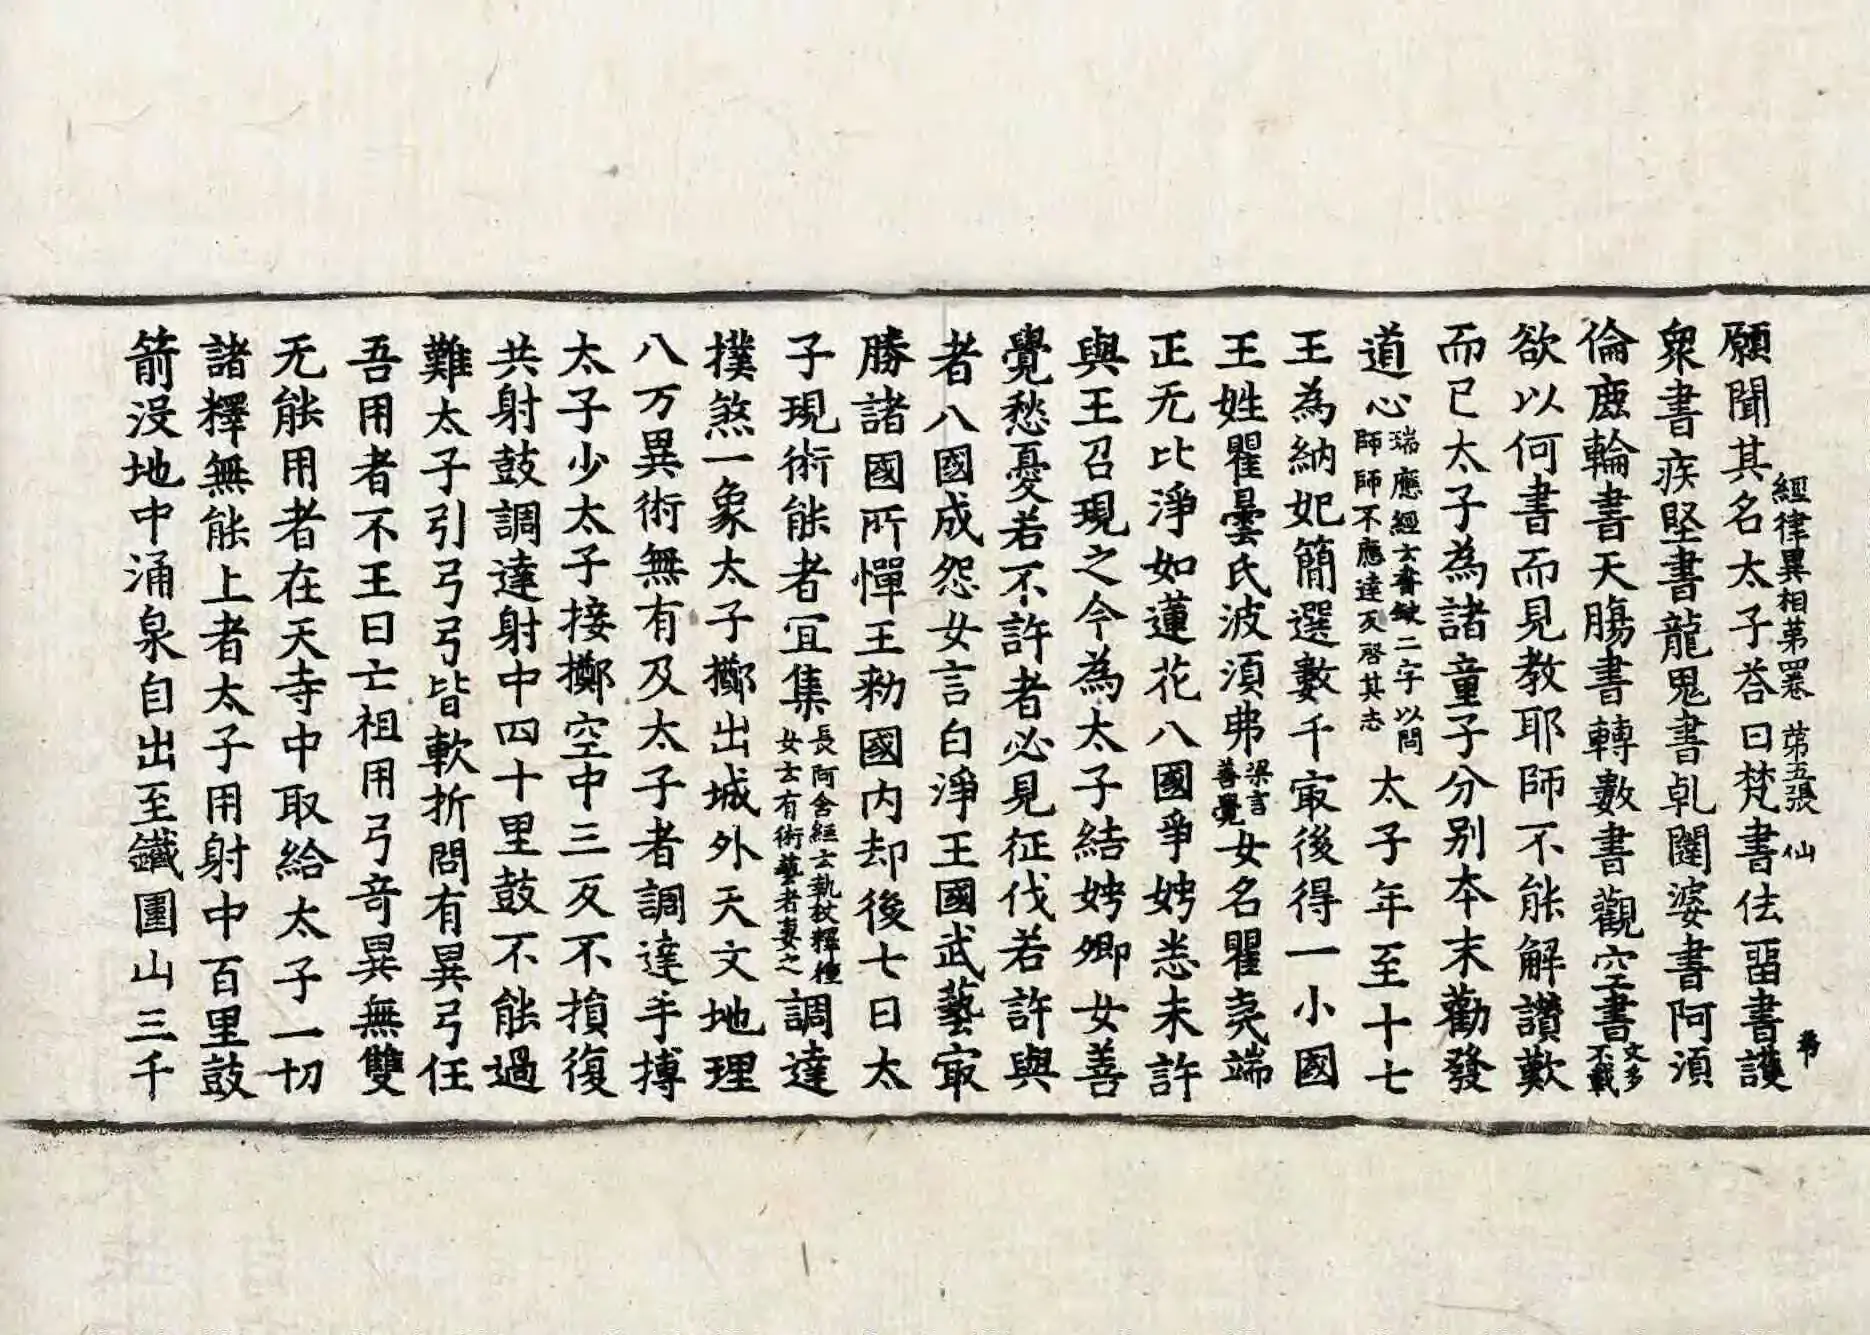 經律異相第四卷 第五張 仙
願聞其名太子荅曰梵書佉留書護
衆書疾堅書龍鬼書乹闥婆書阿湏
倫書鹿輪書天腸書轉數書觀空書文多不載
欲以何書而見教耶師不能解讃歎
而已太子為諸童子分別本末勸發
道心瑞應經云書缺二字以問師師不應達反啓其志太子年至十七
王為納妃簡選數千㝡後得一小國
王姓瞿曇氏波湏弗梁言善覺女名瞿夷端
正无比淨如蓮花八國爭娉悉未許
與王召現之今為太子結娉卿女善
覺愁憂若不許者必見征伐若許與
者八國成怨女言白淨王國武藝㝡
勝諸國所憚王勑國內却後七日太
子現術能者冝集長阿含經云執杖釋種女云有術藝者妻之調達
撲煞一象太子擲出城外天文地理
八万異術無有及太子者調達手搏
太子少太子接擲空中三反不損復
共射鼓調達射中四十里鼓不能過
難太子引弓弓皆軟折問有異弓任
吾用者不王曰亡祖用弓奇異無雙
无能用者在天寺中取給太子一切
諸釋無能上者太子用射中百里鼓
箭没地中涌泉自出至鐵圍山三千